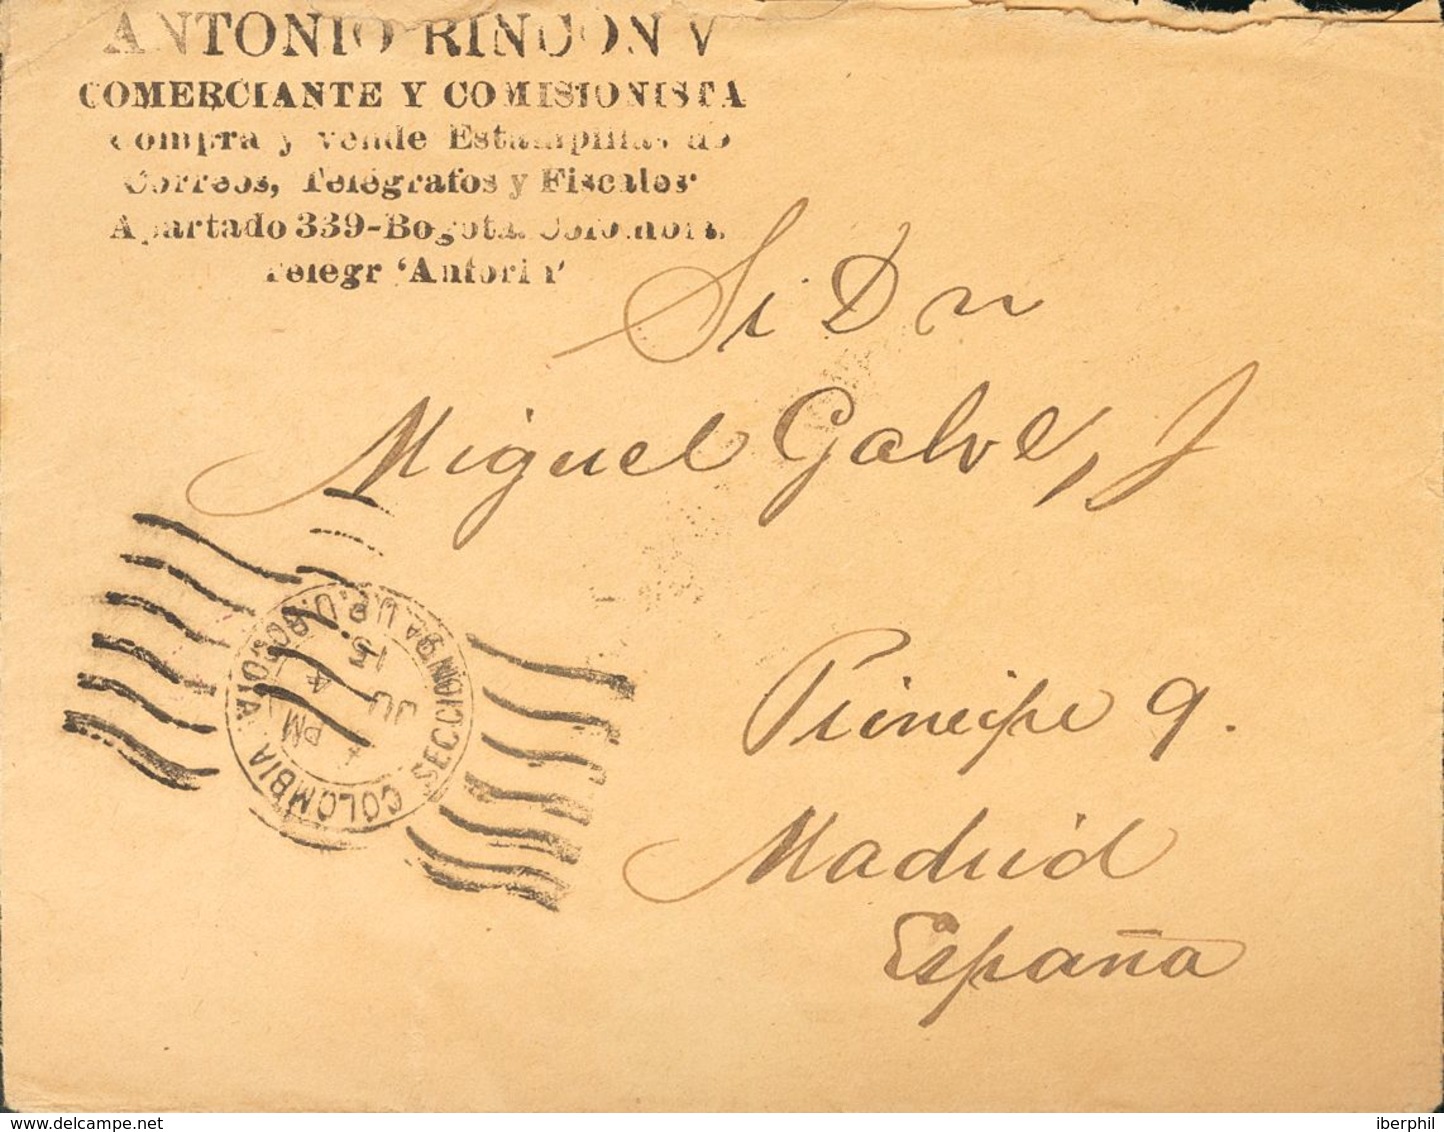 ANTONIO RINCON V
COMERCIANTE Y COMISIONISTA
Compra y vende Estampillas de
Correos, Telégrafos y Fiscales
Apartado 339-Bogotá. Colombia.
Telegr 'Antorin'
Sr Dn
Miguel Galve, J
Principe 9.
Madrid
España
COLOMBIA BOGOTA
SECCION
U.P.U.
JU
4 PM
15
iberphil